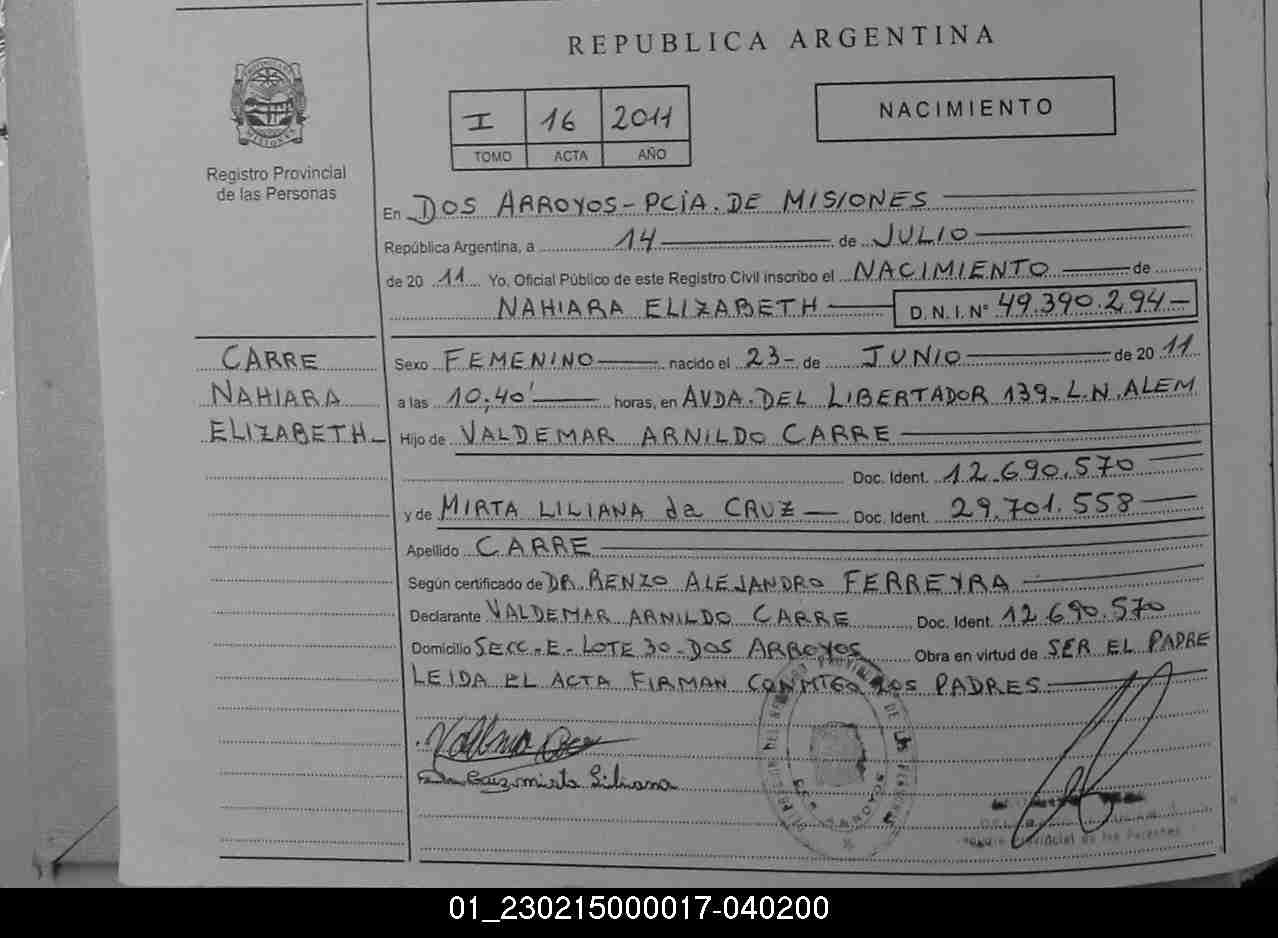 REPUBLICA ARGENTINA
Registro Provincial
de las Personas
I 16 2011
TOMO ACTA AÑO
NACIMIENTO
En DOS ARROYOS - PCIA. DE MISIONES
República Argentina, a 14 de JULIO
de 20 11 Yo, Oficial Público de este Registro Civil inscribo el NACIMIENTO de
NAHIARA ELIZABETH D.N.I. Nº 49.390.294-
CARRE
NAHIARA
ELIZABETH-
Sexo FEMENINO nacido el 23- de JUNIO de 20 11
a las 10,40' horas, en AVDA. DEL LIBERTADOR 139- L.N. ALEM
Hijo de VALDEMAR ARNILDO CARRE
Doc. Ident. 12.690.570
y de MIRTA LILIANA da CRUZ Doc. Ident. 29.701.558
Apellido CARRE
Según certificado de DR. RENZO ALEJANDRO FERREYRA
Declarante VALDEMAR ARNILDO CARRE Doc. Ident. 12.690.570
Domicilio SECC-E- LOTE 30-DOS ARROYOS Obra en virtud de SER EL PADRE
LEIDA EL ACTA FIRMAN CONMIGO LOS PADRES
mirta Liliana
01_230215000017-040200